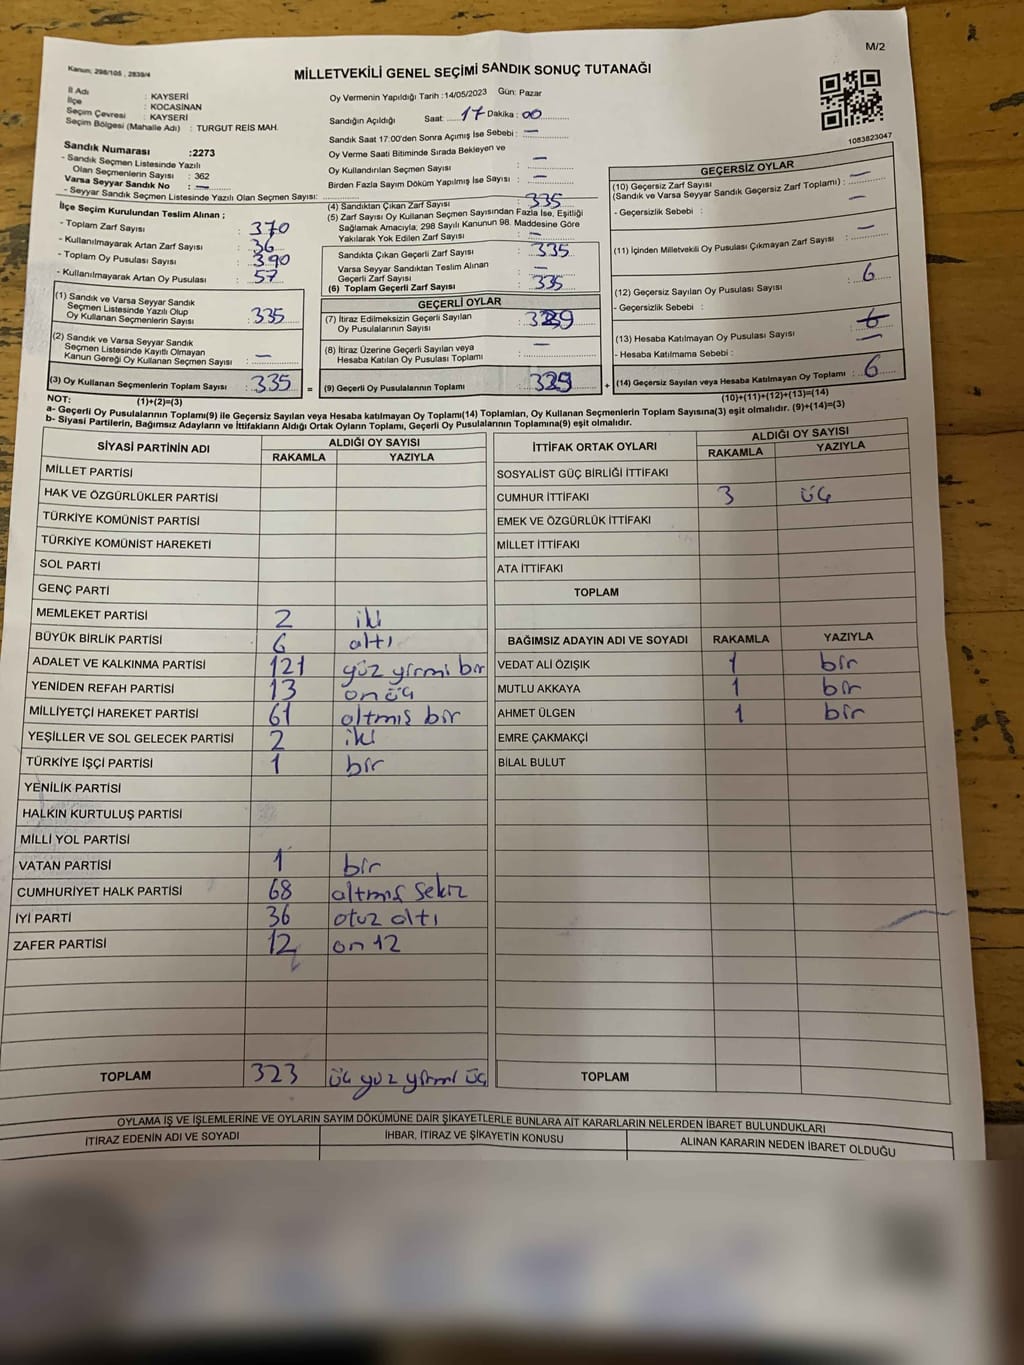 M/2
Kanun; 298/105 , 2839/4
MİLLETVEKİLİ GENEL SEÇİMİ SANDIK SONUÇ TUTANAĞI
İl Adı : KAYSERİ
İlçe : KOCASİNAN
Seçim Çevresi : KAYSERİ
Seçim Bölgesi (Mahalle Adı) : TURGUT REİS MAH.
Sandık Numarası :2273
- Sandık Seçmen Listesinde Yazılı
Olan Seçmenlerin Sayısı : 362
Varsa Seyyar Sandık No : —
- Seyyar Sandık Seçmen Listesinde Yazılı Olan Seçmen Sayısı:
İlçe Seçim Kurulundan Teslim Alınan ;
- Toplam Zarf Sayısı : 370
- Kullanılmayarak Artan Zarf Sayısı : 36
- Toplam Oy Pusulası Sayısı : 390
- Kullanılmayarak Artan Oy Pusulası : 57
(1) Sandık ve Varsa Seyyar Sandık
Seçmen Listesinde Yazılı Olup
Oy Kullanan Seçmenlerin Sayısı : 335
(2) Sandık ve Varsa Seyyar Sandık
Seçmen Listesinde Kayıtlı Olmayan
Kanun Gereği Oy Kullanan Seçmen Sayısı : —
(3) Oy Kullanan Seçmenlerin Toplam Sayısı : 335 =
Oy Vermenin Yapıldığı Tarih :14/05/2023 Gün: Pazar
Sandığın Açıldığı Saat: 17 Dakika : 00
Sandık Saat 17:00'den Sonra Açımış İse Sebebi : —
Oy Verme Saati Bitiminde Sırada Bekleyen ve
Oy Kullandırılan Seçmen Sayısı : —
Birden Fazla Sayım Döküm Yapılmış İse Sayısı : —
(4) Sandıktan Çıkan Zarf Sayısı : 335
(5) Zarf Sayısı Oy Kullanan Seçmen Sayısından Fazla İse, Eşitliği
Sağlamak Amacıyla, 298 Sayılı Kanunun 98. Maddesine Göre
Yakılarak Yok Edilen Zarf Sayısı : —
Sandıkta Çıkan Geçerli Zarf Sayısı : 335
Varsa Seyyar Sandıktan Teslim Alınan
Geçerli Zarf Sayısı : —
(6) Toplam Geçerli Zarf Sayısı : 335
GEÇERLİ OYLAR
(7) İtiraz Edilmeksizin Geçerli Sayılan
Oy Pusulalarının Sayısı :
(8) İtiraz Üzerine Geçerli Sayılan veya
Hesaba Katılan Oy Pusulası Toplamı : —
(9) Geçerli Oy Pusulalarının Toplamı : 329 +
1083823047
GEÇERSİZ OYLAR
(10) Geçersiz Zarf Sayısı
(Sandık ve Varsa Seyyar Sandık Geçersiz Zarf Toplamı) : —
- Geçersizlik Sebebi : —
(11) İçinden Milletvekili Oy Pusulası Çıkmayan Zarf Sayısı : —
(12) Geçersiz Sayılan Oy Pusulası Sayısı : 6
- Geçersizlik Sebebi :
(13) Hesaba Katılmayan Oy Pusulası Sayısı : 6
- Hesaba Katılmama Sebebi : —
(14) Geçersiz Sayılan veya Hesaba Katılmayan Oy Toplamı : 6
NOT: (1)+(2)=(3) (10)+(11)+(12)+(13)=(14)
a- Geçerli Oy Pusulalarının Toplamı(9) ile Geçersiz Sayılan veya Hesaba katılmayan Oy Toplamı(14) Toplamları, Oy Kullanan Seçmenlerin Toplam Sayısına(3) eşit olmalıdır. (9)+(14)=(3)
b- Siyasi Partilerin, Bağımsız Adayların ve İttifakların Aldığı Ortak Oyların Toplamı, Geçerli Oy Pusulalarının Toplamına(9) eşit olmalıdır.
SİYASİ PARTİNİN ADI ALDIĞI OY SAYISI
RAKAMLA YAZIYLA
MİLLET PARTİSİ
HAK VE ÖZGÜRLÜKLER PARTİSİ
TÜRKİYE KOMÜNİST PARTİSİ
TÜRKİYE KOMÜNİST HAREKETİ
SOL PARTİ
GENÇ PARTİ
MEMLEKET PARTİSİ 2 iki
BÜYÜK BİRLİK PARTİSİ 6 altı
ADALET VE KALKINMA PARTİSİ 121 yüz yirmi bir
YENİDEN REFAH PARTİSİ 13 on üç
MİLLİYETÇİ HAREKET PARTİSİ 61 altmış bir
YEŞİLLER VE SOL GELECEK PARTİSİ 2 iki
TÜRKİYE İŞÇİ PARTİSİ 1 bir
YENİLİK PARTİSİ
HALKIN KURTULUŞ PARTİSİ
MİLLİ YOL PARTİSİ
VATAN PARTİSİ 1 bir
CUMHURİYET HALK PARTİSİ 68 altmış sekiz
İYİ PARTİ 36 otuz altı
ZAFER PARTİSİ 12 on 12
TOPLAM 323 üç yüz yirmi üç
İTTİFAK ORTAK OYLARI ALDIĞI OY SAYISI
RAKAMLA YAZIYLA
SOSYALİST GÜÇ BİRLİĞİ İTTİFAKI
CUMHUR İTTİFAKI 3 üç
EMEK VE ÖZGÜRLÜK İTTİFAKI
MİLLET İTTİFAKI
ATA İTTİFAKI
TOPLAM
BAĞIMSIZ ADAYIN ADI VE SOYADI RAKAMLA YAZIYLA
VEDAT ALİ ÖZIŞIK 1 bir
MUTLU AKKAYA 1 bir
AHMET ÜLGEN 1 bir
EMRE ÇAKMAKÇİ
BİLAL BULUT
TOPLAM
OYLAMA İŞ VE İŞLEMLERİNE VE OYLARIN SAYIM DÖKÜMÜNE DAİR ŞİKAYETLERLE BUNLARA AİT KARARLARIN NELERDEN İBARET BULUNDUKLARI
İTİRAZ EDENİN ADI VE SOYADI İHBAR, İTİRAZ VE ŞİKAYETİN KONUSU ALINAN KARARIN NEDEN İBARET OLDUĞU